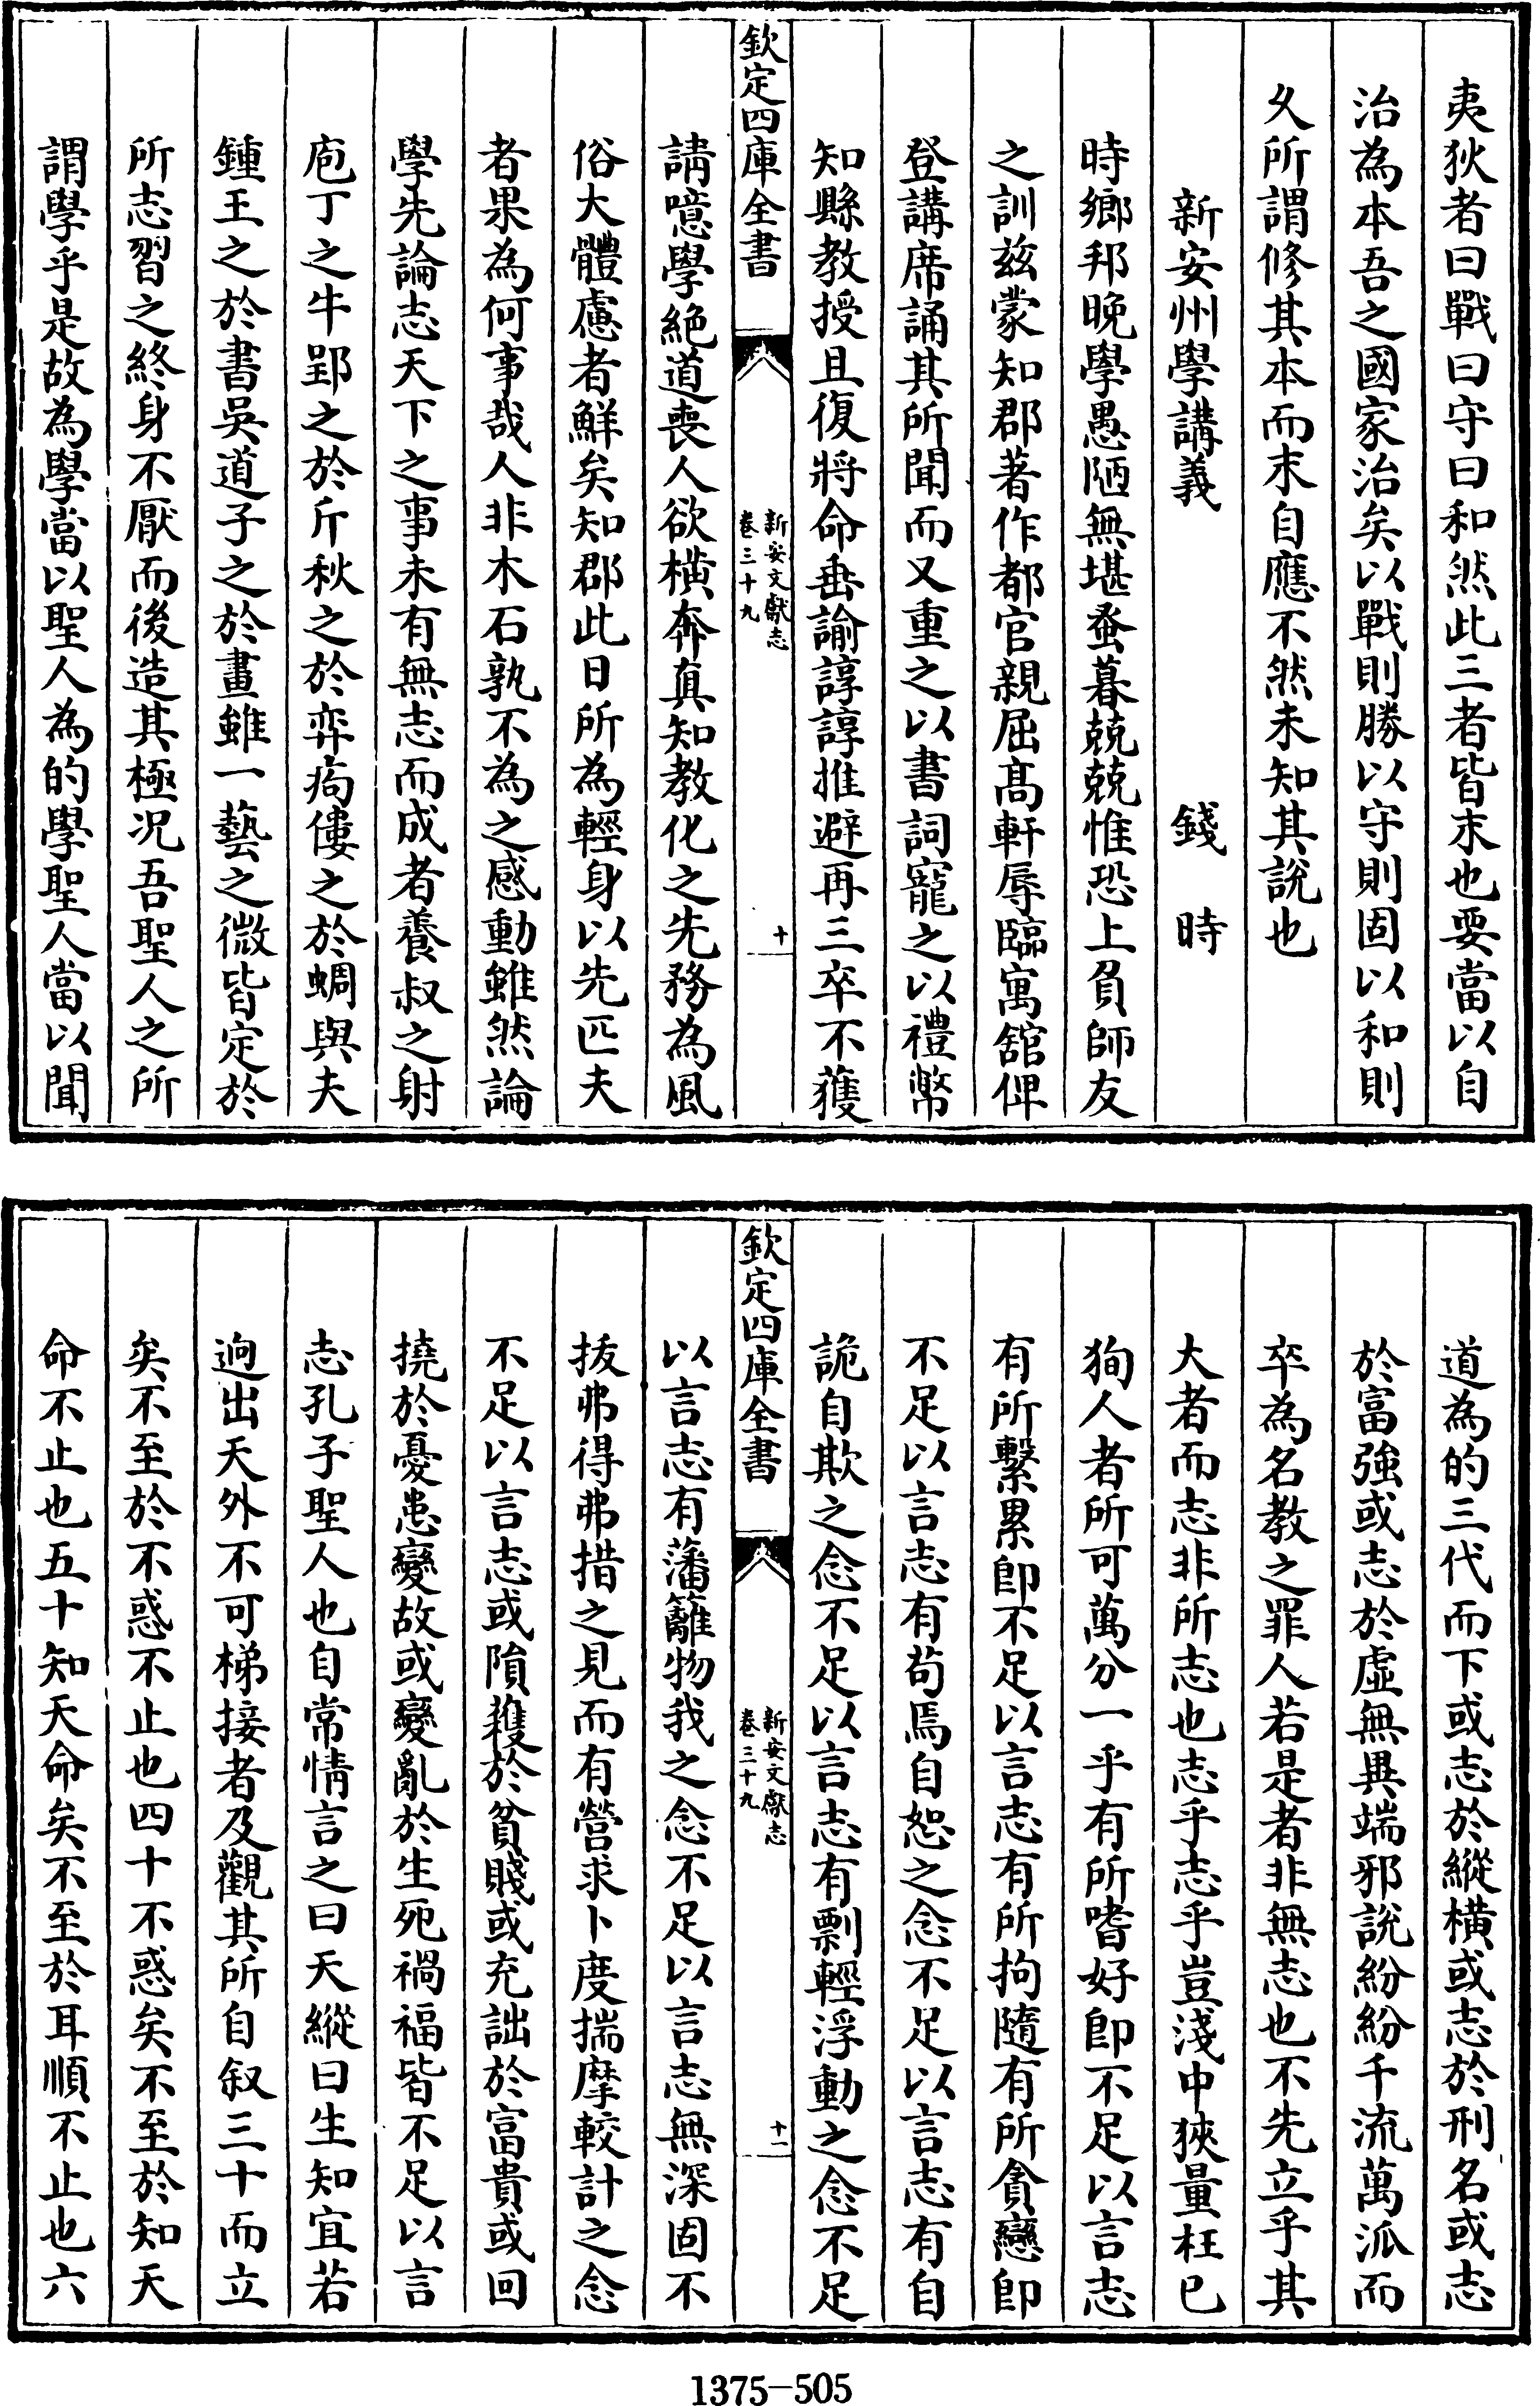 夷狄者曰戰曰守曰和然此三者皆末也要當以自
治為本吾之國家治矣以戰則勝以守則固以和則
久所謂修其本而末自應不然未知其說也
新安州學講義 錢時
時鄉邦晚學愚陋無堪蚤暮兢兢惟恐上負師友
之訓兹蒙知郡著作都官親屈髙軒辱臨寓舘俾
登講席誦其所聞而又重之以書詞寵之以禮幣
知縣教授且復將命垂諭諄諄推避再三卒不獲
欽定四庫全書
新安文獻志
卷三十九
十
請噫學絶道喪人欲橫奔真知教化之先務為風
俗大體慮者鮮矣知郡此日所為輕身以先匹夫
者果為何事哉人非木石孰不為之感動雖然論
學先論志天下之事未有無志而成者養叔之射
庖丁之牛郢之於斤秋之於弈痀僂之於蜩與夫
鍾王之於書吳道子之於畫雖一藝之微皆定於
所志習之終身不厭而後造其極况吾聖人之所
謂學乎是故為學當以聖人為的學聖人當以聞
道為的三代而下或志於縱橫或志於刑名或志
於富強或志於虛無異端邪說紛紛千流萬派而
卒為名教之罪人若是者非無志也不先立乎其
大者而志非所志也志乎志乎豈淺中狹量枉已
狥人者所可萬分一乎有所嗜好即不足以言志
有所繫累即不足以言志有所拘隨有所貪戀即
不足以言志有茍焉自恕之念不足以言志有自
詭自欺之念不足以言志有剽輕浮動之念不足
欽定四庫全書
新安文獻志
卷三十九
十一
以言志有藩籬物我之念不足以言志無深固不
拔弗得弗措之見而有營求卜度揣摩較計之念
不足以言志或隕穫於貧賤或充詘於富貴或回
撓於憂患變故或變亂於生死禍福皆不足以言
志孔子聖人也自常情言之曰天縱曰生知宜若
逈出天外不可梯接者及觀其所自叙三十而立
矣不至於不惑不止也四十不惑矣不至於知天
命不止也五十知天命矣不至於耳順不止也六
1375-505